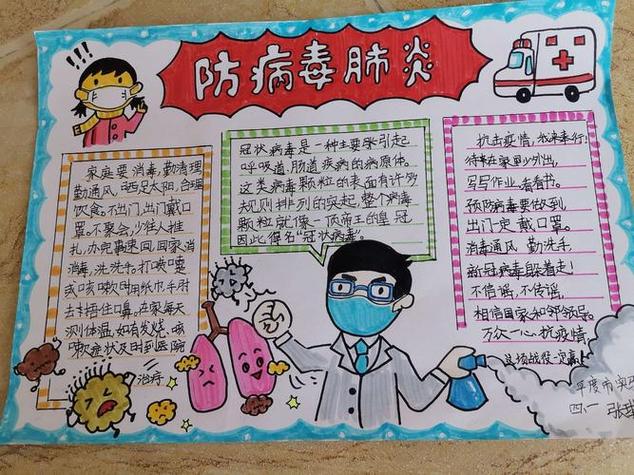 防病毒肺炎
!!!
家庭要消毒,勤清理
勤通风,晒足太阳,合理
饮食。不出门,出门戴口
罩。不聚会,少往人推
扎,办完事速回,回家消
消毒,洗洗手。打喷嚏
或咳嗽时用纸巾,手肘
去捂住口鼻。在家每天
测体温,如有发烧、咳
嗽症状及时到医院
治疗
冠状病毒是一种主要引起
呼吸道、肠道疾病的病原体。
这类病毒颗粒的表面有许多
规则排列的突起,整个病毒
颗粒就像一顶帝王的皇冠
因此得名“冠状病毒”。
抗击疫情,
待在家里少外出,
写写作业、看看书。
预防病毒要做到,
出门一定戴口罩。
消毒通风勤洗手,
新冠病毒躲着走!
不信谣,不传谣,
相信国家和邻邻居。
万众一心抗疫情,
这场战役一定赢!
平度市实
四一 张